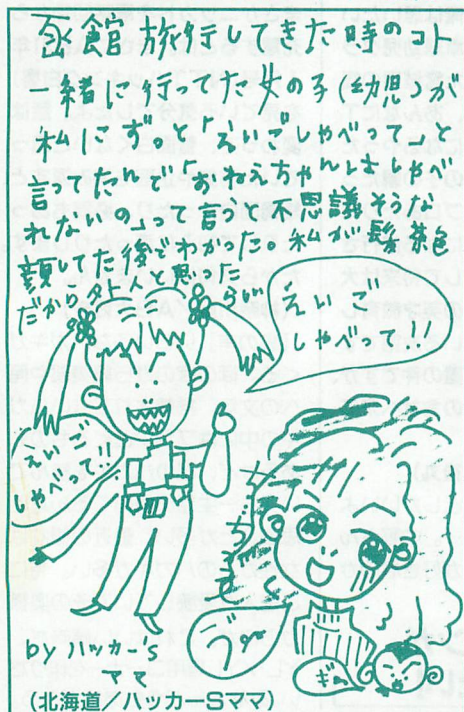 函館旅行してきた時のコト
一緒に行ってた女の子(幼児)が
私にずっと「えいごしゃべって。」と
言ってたんで「おねえちゃんはしゃべ
れないのよって言うと不思議そうな
顔してた後でわかった。私が髪茶色
だから外人と思ったらしい
えいご
しゃべって!!
えいご
しゃべって!!
by ハッカーS
ママ
(北海道/ハッカーSママ)